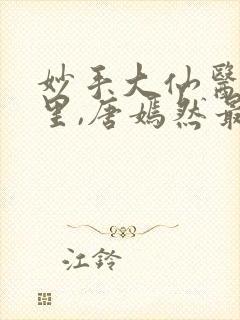 妙手大仙醫
里,唐嫣然最
江鈴